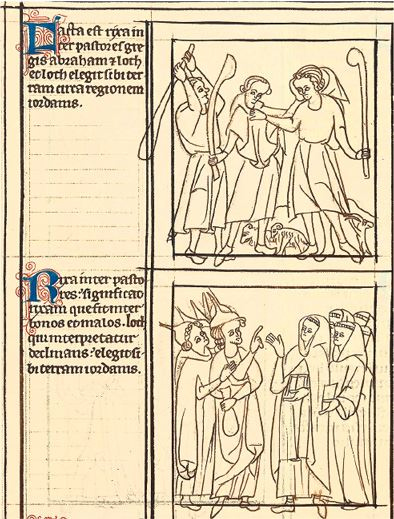 Facta est rixa in
ter pastores gre
gis abraham ⁊ loth
et loth elegit sibi ter
ram circa regionem
iordanis.
Rixa inter pasto
res: significao
rixam que fit inter
bonos et malos. loth
qui interpretatur
declinans: elegit si
bi terram iordanis.